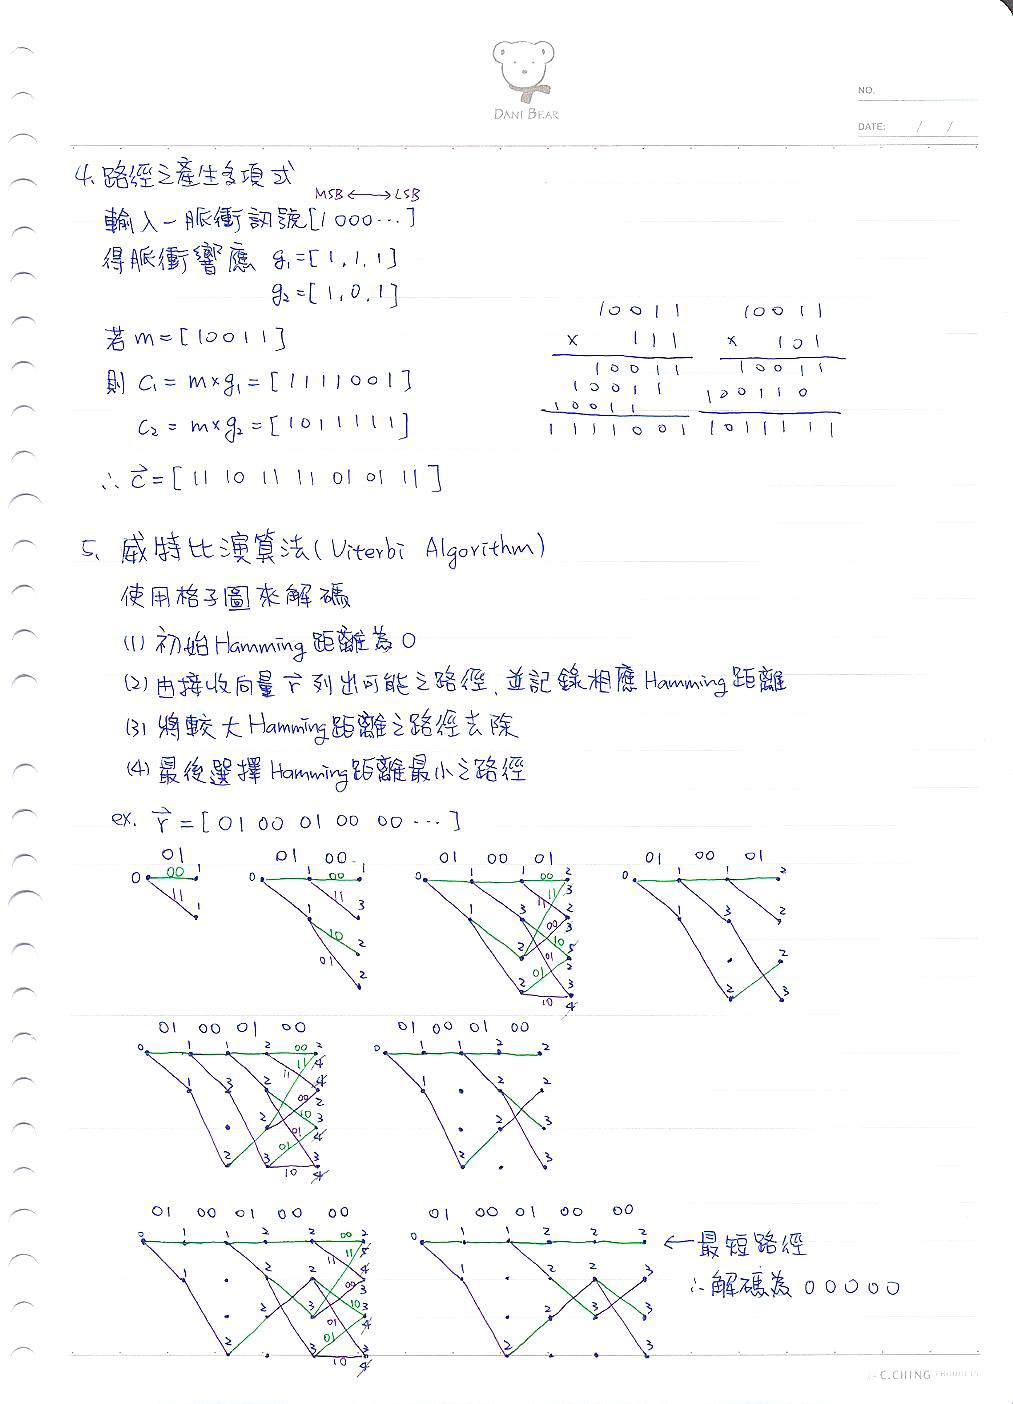 DANI BEAR
NO.
DATE: / /
4. 路徑之產生多項式
MSB ⟷ LSB
輸入一脈衝訊號[1 0 0 0 ⋯]
得脈衝響應 g₁=[1,1,1]
g₂=[1,0,1]
若 m=[1 0 0 1 1]
則 C₁ = m×g₁ = [1 1 1 1 0 0 1]
C₂ = m×g₂ = [1 0 1 1 1 1 1]
∴ C⃗ = [11 10 11 11 01 01 11]
1 0 0 1 1
× 1 1 1
1 0 0 1 1
1 0 0 1 1
1 0 0 1 1
1 1 1 1 0 0 1
1 0 0 1 1
× 1 0 1
1 0 0 1 1
1 0 0 1 1 0
1 0 1 1 1 1 1
5. 威特比演算法(Viterbi Algorithm)
使用格子圖來解碼
(1) 初始Hamming距離為0
(2) 由接收向量 r⃗ 列出可能之路徑、並記錄相應Hamming距離
(3) 將較大Hamming距離之路徑去除
(4) 最後選擇Hamming距離最小之路徑
ex. r⃗ = [01 00 01 00 00 ⋯]
01
0 00 1
11
1
01 00
0 1 00 1
11
1 3
10
2
01
2
01 00 01
0 1 1 00 2
01 00 01
0 1 1 2
1 3 2
2
2 3
01 00 01 00
0 1 1 2 00 2
01 00 01 00
0 1 1 2 2
1 2 2
2 3
2 3
01 00 01 00 00
0 1 1 2 2 00 2
01 00 01 00 00
0 1 1 2 2 2
1 2 2 3
2 3 3
2 3
← 最短路徑
∴ 解碼為 0 0 0 0 0
C.CHING PRODUCTS